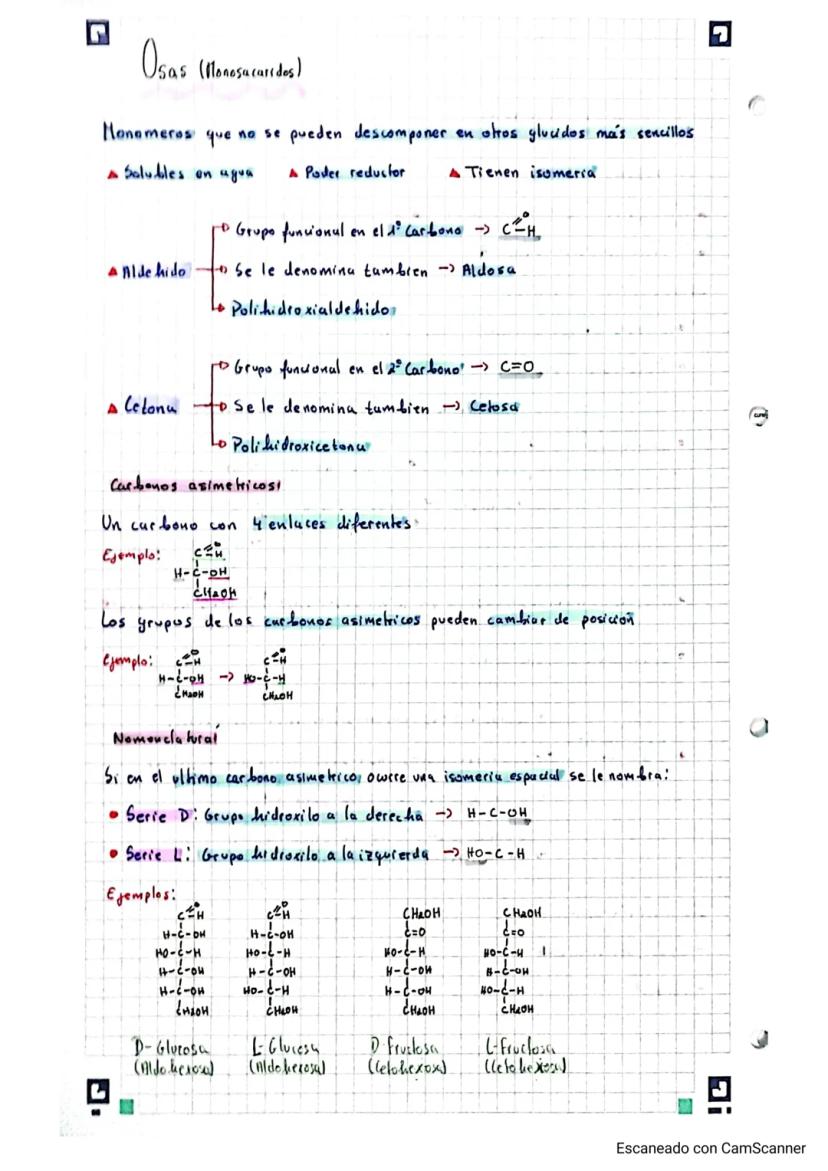 Osas (Monosacaridos)
Monomeros que no se pueden descomponer en otros glucidos más sencillos
▲ Solubles en agua ▲ Poder reductor ▲ Tienen isomeria
Grupo funcional en el 1º Carbono → C=O-H
▲ Aldehido → Se le denomina tambien → Aldosa
Polihidroxialdehido
Grupo funcional en el 2º Carbono → C=O
▲ Cetona → Se le denomina tambien → Cetosa
Polihidroxicetona
Carbonos asimetricos
Un carbono con 4 enlaces diferentes
Ejemplo:
C=O-H
H-C-OH
CH2OH
Los grupos de los carbonos asimetricos pueden cambiar de posición
Ejemplo:
C=O-H C=O-H
H-C-OH → HO-C-H
CH2OH CH2OH
Nomenclatura
Si en el ultimo carbono asimetrico, ocurre una isomeria espacial se le nombra:
• Serie D: Grupo hidroxilo a la derecha → H-C-OH
• Serie L: Grupo hidroxilo a la izquierda → HO-C-H
Ejemplos:
C=O-H C=O-H CH2OH CH2OH
H-C-OH H-C-OH C=O C=O
HO-C-H HO-C-H HO-C-H HO-C-H
H-C-OH H-C-OH H-C-OH H-C-OH
H-C-OH HO-C-H H-C-OH HO-C-H
CH2OH CH2OH CH2OH CH2OH
D-Glucosa L-Glucosa D-Fructosa L-Fructosa
(Aldohexosa) (Aldohexosa) (Cetohexox) (Cetohexosa)
Escaneado con CamScanner